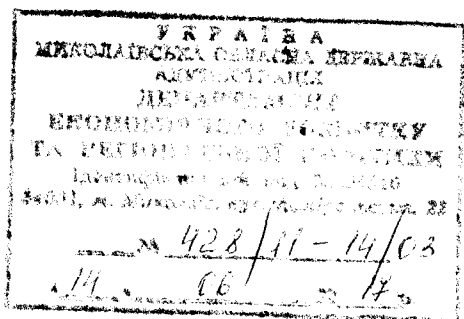 УКРАЇНА
МИКОЛАЇВСЬКА ОБЛАСНА ДЕРЖАВНА
АДМІНІСТРАЦІЯ
ДЕПАРТАМЕНТ
ЕКОНОМІЧНОГО РОЗВИТКУ
ТА РЕГІОНАЛЬНОЇ ПОЛІТИКИ
Ідентифікаційний код
м. Миколаїв, 22
№ 428/11-14/03
14 06 17 р